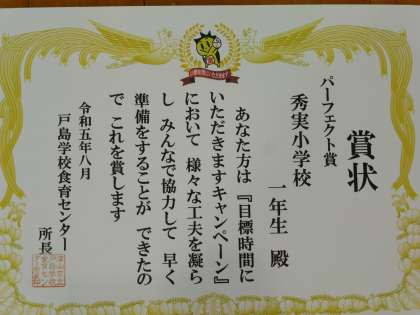 賞状
パーフェクト賞
秀実小学校
一年生 殿
あなた方は『目標時間に
いただきますキャンペーン』
において 様々な工夫を凝ら
し みんなで協力して 早く
準備をすることが できたの
で これを賞します
令和五年八月
戸島学校食育センター
所長